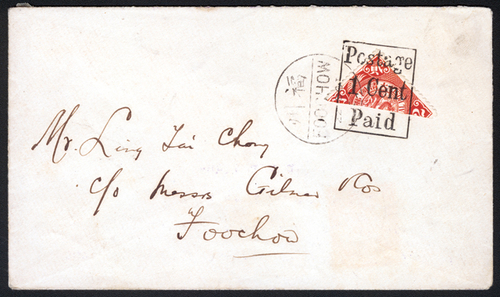 Postage
1 Cent
Paid
FOOCHOW
福
州
Mr. Ling Tai Chong
c/o Messrs Gilman &Co
Foochow